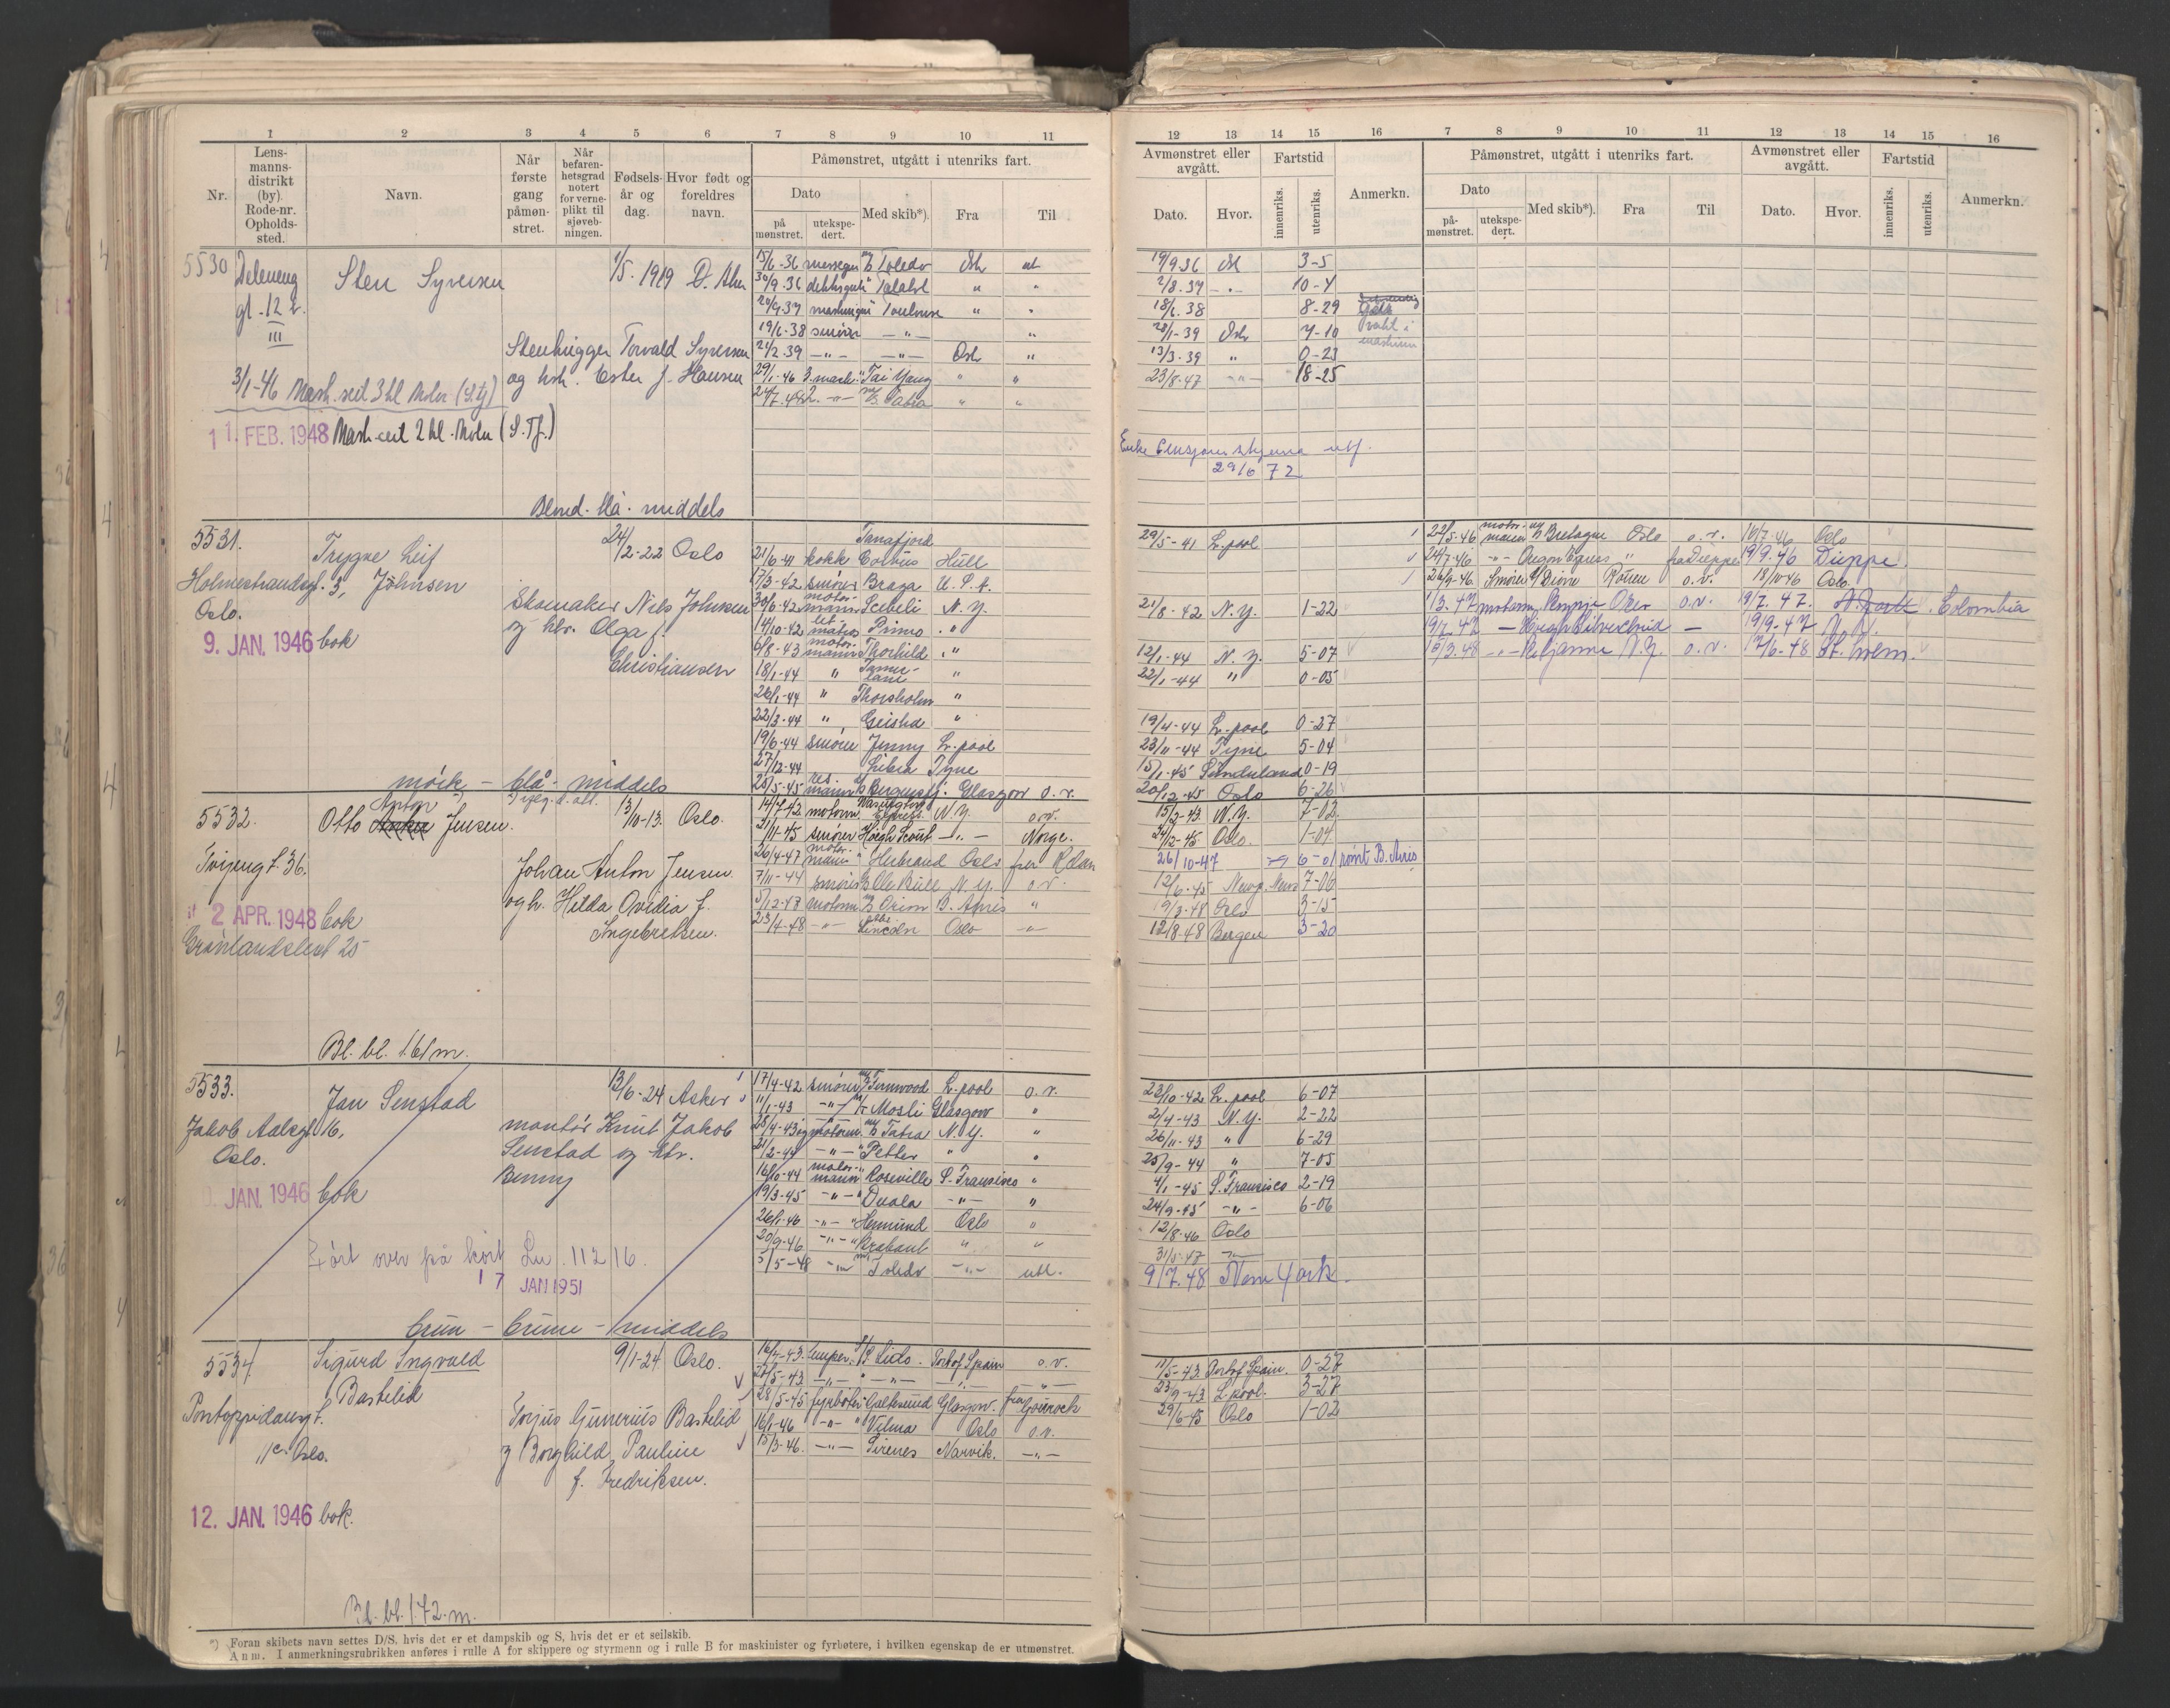 1 2 3 4 5 6 7 8 9 10 11
Nr.
Lens-
manns-
distrikt
(by).
Rode-nr.
Opholds-
sted.
Navn.
Når
første
gang
påmøn-
stret.
Når
befaren-
hetsgrad
notert
for verne-
plikt til
sjøveb-
ningen.
Fødsels-
år og
dag.
Hvor født og
foreldres
navn.
Påmønstret, utgått i utenriks fart.
Dato
på
mønstret.
utekspe-
dert.
Med skib*).
Fra
Til
5530
gt. 12 b.
III
Sten Syversen
1/5. 1919 Ø. Aker
Stenhugger Torvald Syversen
og hstr. Ester f. Hansen
3/1-46 Mask.sert 3 kl. Motor (S.tj)
11. FEB. 1948 Mask.sert 2 kl. Motor (S.Tj.)
Blond. blå. middels
15/6-36 messegut M/S Toledo Oslo ut
30/9-36 dekksgut " Talabot " "
20/9-37 maskingut " Toulouse " "
19/6-38 smører — " — "
21/2-39 — " — — " — Oslo "
29/1-46 3. mask. " Tai Yang " "
24/7.48 2. — " — M/S Tatra " "
5531.
Holmestrandsgt. 3,
Oslo.
9. JAN. 1946 bok
Trygve Leif
Johnsen
24/2-22 Oslo
Skomaker Nils Johnsen
og hr. Olga f.
Christiansen
mørk - blå - middels
Tanafjord
21/6-41 kokk Corbus Hull
17/3-42 smører Braga U.S.A.
30/6-42 motor-mann Lebeli N.Y.
14/10-42 let-matros Primo "
6/8-43 motor-mann Thorhild "
18/1-44 " "
26/1-44 " Thorsholm "
22/3-44 " Geisha "
19/6-44 smører Jenny L.pool
27/12-44 Tyne
25/5-45 Bergensfj. Glasgow o.v.
5532.
Tvijengt. 36.
2 APR. 1948 bok
Grønlandsleret 25
Otto Anton Jensen.
13/10-13. Oslo.
Johan Anton Jensen
og h. Hilda Ovidia f.
Ingebretsen.
Bl. bl. 1.61 m.
14/7-42 motorm. Washington Express N.Y. o.v.
21/11-45 smører Høegh Scout — " — Norge.
26/4-47 motor-mann " Herbrand Oslo
7/11-44 smører M/S Ole Bull N.Y. o.v.
5/12-47 motorm. M/S Orion B. Aires "
23/4-48 — " — Abr. Lincoln Oslo — " —
5533.
Jakob Aalsgt. 16,
Oslo.
JAN. 1946 bok
Jan Senstad
13/6-24 Asker
montør Knut Jakob
Senstad og htr.
Benny
Ført over på kort Lu. 11216.
17 JAN 1951
brun - brune - middels
17/4-42 smører M/S Fernwood L.pool o.v.
11/1-43 — " — M/T Mosli Glasgow "
28/4-43 motorm. M/S Tatra N.Y. "
21/2-44 — " — " Petter " "
16/10-44 motor-mann " Roseville S. Francisco "
19/3-45 — " — " Duala — " — "
26/1-46 — " — " Hermund Oslo "
20/9-46 — " — " Brabant " "
5/5-48 — " — M/S Toledo — " — utl.
5534.
Pontoppidansgt.
11c. Oslo.
Sigurd Ingvald
Bastelid
9/1-24 Oslo.
Torjus Gunerius Bastelid
og Borghild Pauline
f. Fredriksen.
12. JAN. 1946 bok.
Bl. bl. 1.72. m.
16/4-43. lemper. D/S Lido. Port of Spain o.v.
22/5-43 — " — " — " — — " — — " —
28/5-45 fyrbøter Galtesund Glasgow. fra Gourock
16/1-46 — " — " Vilma Oslo o.v.
15/3-46. — " — Sirenes Narvik. — " —
*) Foran skibets navn settes D/S, hvis det er et dampskib og S, hvis det er et seilskib.
Anm. I anmerkningsrubrikken anføres i rulle A for skippere og styrmenn og i rulle B for maskinister og fyrbøtere, i hvilken egenskap de er utmønstret.
12 13 14 15 16 7 8 9 10 11 12 13 14 15 16
Avmønstret eller
avgått.
Dato.
Hvor.
Fartstid
innenriks.
utenriks.
Anmerkn.
Påmønstret, utgått i utenriks fart.
Dato
på-
mønstret.
utekspe-
dert.
Med skib*).
Fra
Til
Avmønstret eller
avgått.
Dato.
Hvor.
Fartstid
innenriks.
utenriks.
Anmerkn.
19/9 36 Osl 3-5
2/8.37 — " — 10-4
18/6.38 8-29
vakt i
maskinen
28/1-39 Oslo 7-10
13/3-39 " 0-23
23/8-47 — " — 18-25
29/6 72
29/5-41 L.pool
21/8-42 N.Y. 1-22
12/1-44 N.Y. 5-07
22/1-44 " 0-05
19/4-44 L.pool 0-27
23/11-44 Tyne 5-04
15/1-45 Sunderland 0-19
20/12-45 Oslo 6-26
22/5-46 motor-mann M/S Bretagne Oslo o.v. 16/7-46 Oslo
24/7-46 — " — Oregon Express " fra Dieppe 19/9.46 Dieppe.
26/9-46 Smører Rouen o.v. 18/10 46 Oslo.
1/3.47 motorm. Oslo o.v. 19/7. 47. Colombia
19/7.47 — Høegh Silvercloud — 19/9-47 N.Y.
— " — N.Y. o.v. 12/6-48
15/2-43. N.Y. 7-02
24/12-45 Oslo. 1-04
26/10-47 6-01 rømt B. Aires
12/6-45 Newp. News 7-06
19/3-48 Oslo 3-15
12/8-48 Bergen 3-20
23/10-42 L.pool 6-07
2/4-43 N.Y. 2-22
26/11-43 " 6-29
25/9-44 " 7-05
4/1-45 S. Francisco 2-19
24/9-45 — " — 6-06
12/8-46 Oslo
31/5-47 — " —
9/7.48 New York.
11/5-43 Port of Spain. 0-27
23/9-43 L.pool. 3-27
29/6-45 Oslo 1-02